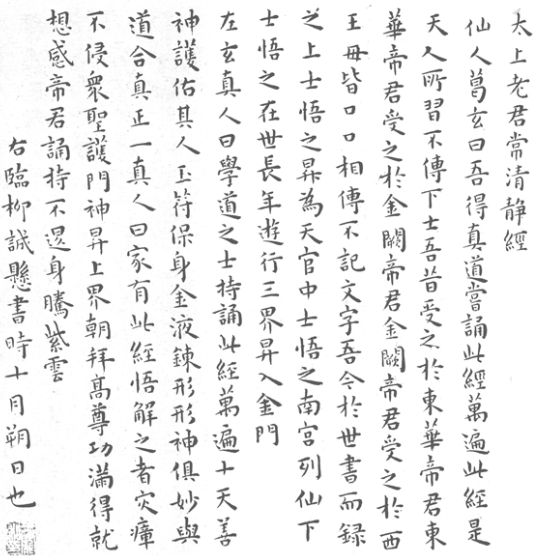 太上老君常清静經
仙人葛玄曰吾得真道嘗誦此經萬遍此經是
天人所習不傳下士吾昔受之於東華帝君東
華帝君受之於金闕帝君金闕帝君受之於西
王母皆口口相傳不記文字吾今於世書而録
之上士悟之昇為天官中士悟之南宫列仙下
士悟之在世長年遊行三界昇入金門
左玄真人曰學道之士持誦此經萬遍十天善
神護佑其人玉符保身金液鍊形形神俱妙與
道合真正一真人曰家有此經悟解之者灾瘴
不侵衆聖護門神昇上界朝拜髙尊功滿得就
想感帝君誦持不退身騰紫雲
右臨柳誠懸書時十月朔日也